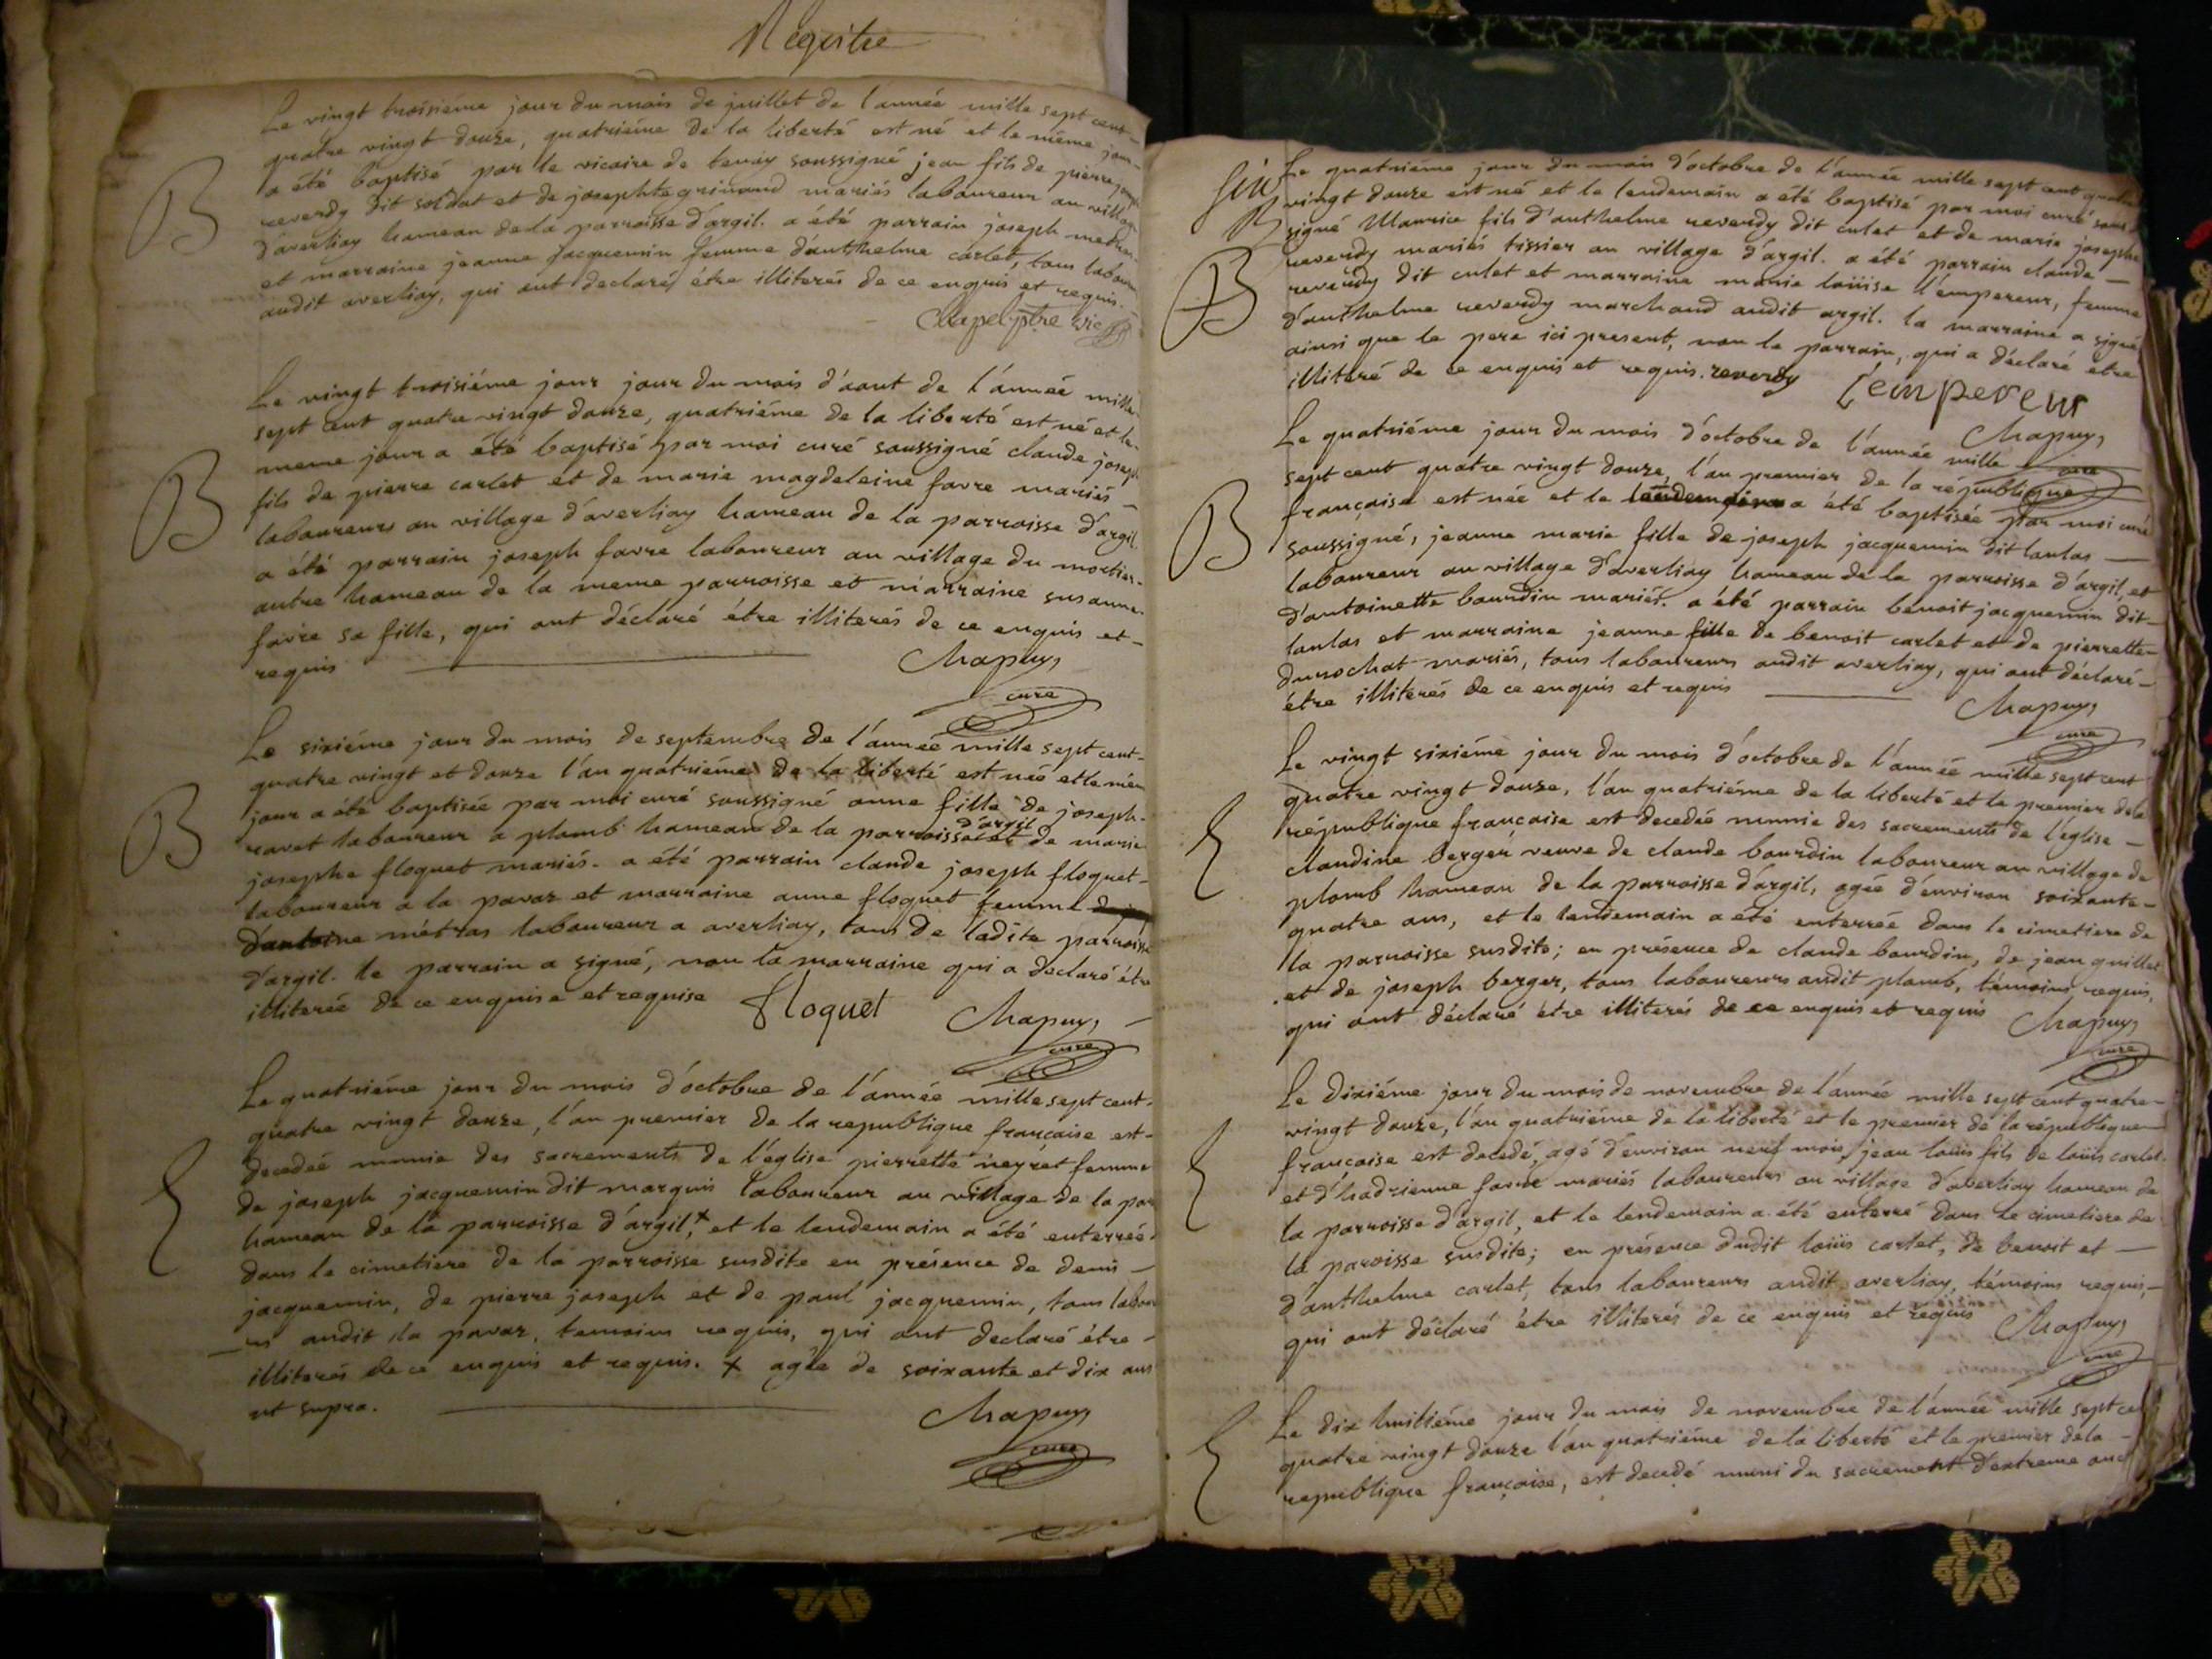 Requitre
Le vingt troisiéme jour du mois de juillet de l'année mille sept cent
quatre vingt douze, quatriéme de la liberté est né et le même jour
a été baptisé par le vicaire de tenay soussigné jean fils de pierre
reverdy dit soldat et de josephte grinand mariés laboureur au village
d'averliay hameau de la parroisse d'argil. a été parrain joseph
et marraine jeanne jacquemin femme d'anthelme carlet, tous
audit averliay, qui ont declaré être illiterés de ce enquis et requis.
Chapel ptre vic
Le vingt troisiéme jour jour du mois d'aout de l'année mille
sept cent quatre vingt douze, quatriéme de la liberté est né et le
meme jour a été baptisé par moi curé soussigné claude joseph
fils de pierre carlet et de marie magdeleine favre mariés
laboureurs au village d'averliay hameau de la parroisse d'argil
a été parrain joseph favre laboureur au village du mortier
autre hameau de la meme parroisse et marraine susanne
favre sa fille, qui ont déclaré étre illiterés de ce enquis et
requis
Chapuy,
curé
Le sixiéme jour du mois de septembre de l'année mille sept cent
quatre vingt et douze l'an quatriéme de la liberté est née et le mem
jour a été baptisée par moi curé soussigné anne fille de joseph
ravet laboureur a plomb hameau de la parroisse d'argil et de marie
josephe floquet mariés. a été parrain claude joseph floquet
laboureur a la pavaz et marraine anne floquet femme
d'antoine métras laboureur a averliay, tous de ladite parroisse
d'argil. le parrain a signé, non la marraine qui a declaré étre
illiterée de ce enquise et requise floquet
Chapuy,
curé
Le quatriéme jour du mois d'octobre de l'année mille sept cent
quatre vingt douze, l'an premier de la republique française est
decedeé munie des sacrements de l'eglise pierrette neyret femme
de joseph jacquemin dit marquis laboureur au village de la pa
hameau de la parroisse d'argil,+ et le lendemain a été enterrée
dans le cimetiere de la parroisse susdite en présence de denis
jacquemin, de pierre joseph et de paul jacquemin, tous labou
rs audit la pavaz, temoins requis, qui ont declaré étre
illiterés de ce enquis et requis. + agée de soixante et dix ans
ut supra.
Chapuy
curé
Le quatriéme jour du mois d'octobre de l'année mille sept cent quatre
vingt douze est né et le lendemain a été baptisé par moi curé sous
signé Maurice fils d'anthelme reverdy dit culet et de marie josephe
reverdy mariés tissier au village d'argil. a été parrain claude
reverdy dit culet et marraine marie loüise l'empereur, femme
d'anthelme reverdy marchand audit argil. la marraine a signé
ainsi que le pere ici present, non le parrain, qui a déclaré etre
illiteré de ce enquis et requis. reverdy L'empereur
Chapuy,
curé
Le quatriéme jour du mois d'octobre de l'année mille
sept cent quatre vingt douze, l'an premier de la république
française est née et le lendemain a été baptisée par moi curé
soussigné, jeanne marie fille de joseph jacquemin dit laulas
laboureur au village d'averliay hameau de la parroisse d'argil, et
d'antoinette bourdin mariés. a été parrain benoit jacquemin dit
laulas et marraine jeanne fille de benoit carlet et de pierrette
durochat mariés, tous laboureurs audit averliay, qui ont déclaré
étre illiterés de ce enquis et requis
Chapuy,
curé
Le vingt sixiéme jour du mois d'octobre de l'année mille sept cent
quatre vingt douze, l'an quatriéme de la liberté et le premier de la
république française est decedeé munie des sacrements de l'église
claudine berger veuve de claude bourdin laboureur au village de
plomb hameau de la parroisse d'argil, agée d'environ soixante
quatre ans, et le lendemain a été enterrée dans le cimetiere de
la parroisse susdite; en présence de claude bourdin, de jean guillet
et de joseph berger, tous laboureurs audit plomb, témoins requis,
qui ont déclaré etre illiterés de ce enquis et requis
Chapuy,
curé
Le dixiéme jour du mois de novembre de l'année mille sept cent quatre
vingt douze, l'an quatriéme de la liberté et le premier de la république
française est decedé, agé d'environ neuf mois, jean loüis fils de loüis carlet
et d'hadrienne favre mariés laboureurs au village d'averliay hameau de
la parroisse d'argil, et le lendemain a été enterré dans le cimetiere de
la paroisse susdite; en présence dudit loüis carlet, de benoit et
d'anthelme carlet, tous laboureurs audit averliay, témoins requis,
qui ont déclaré être illiterés de ce enquis et requis
Chapuy,
curé
Le dix huitiéme jour du mois de novembre de l'année mille sept ce
quatre vingt douze l'an quatriéme de la liberté et le premier de la
republique française, est decedé muni du sacrement d'extreme onc